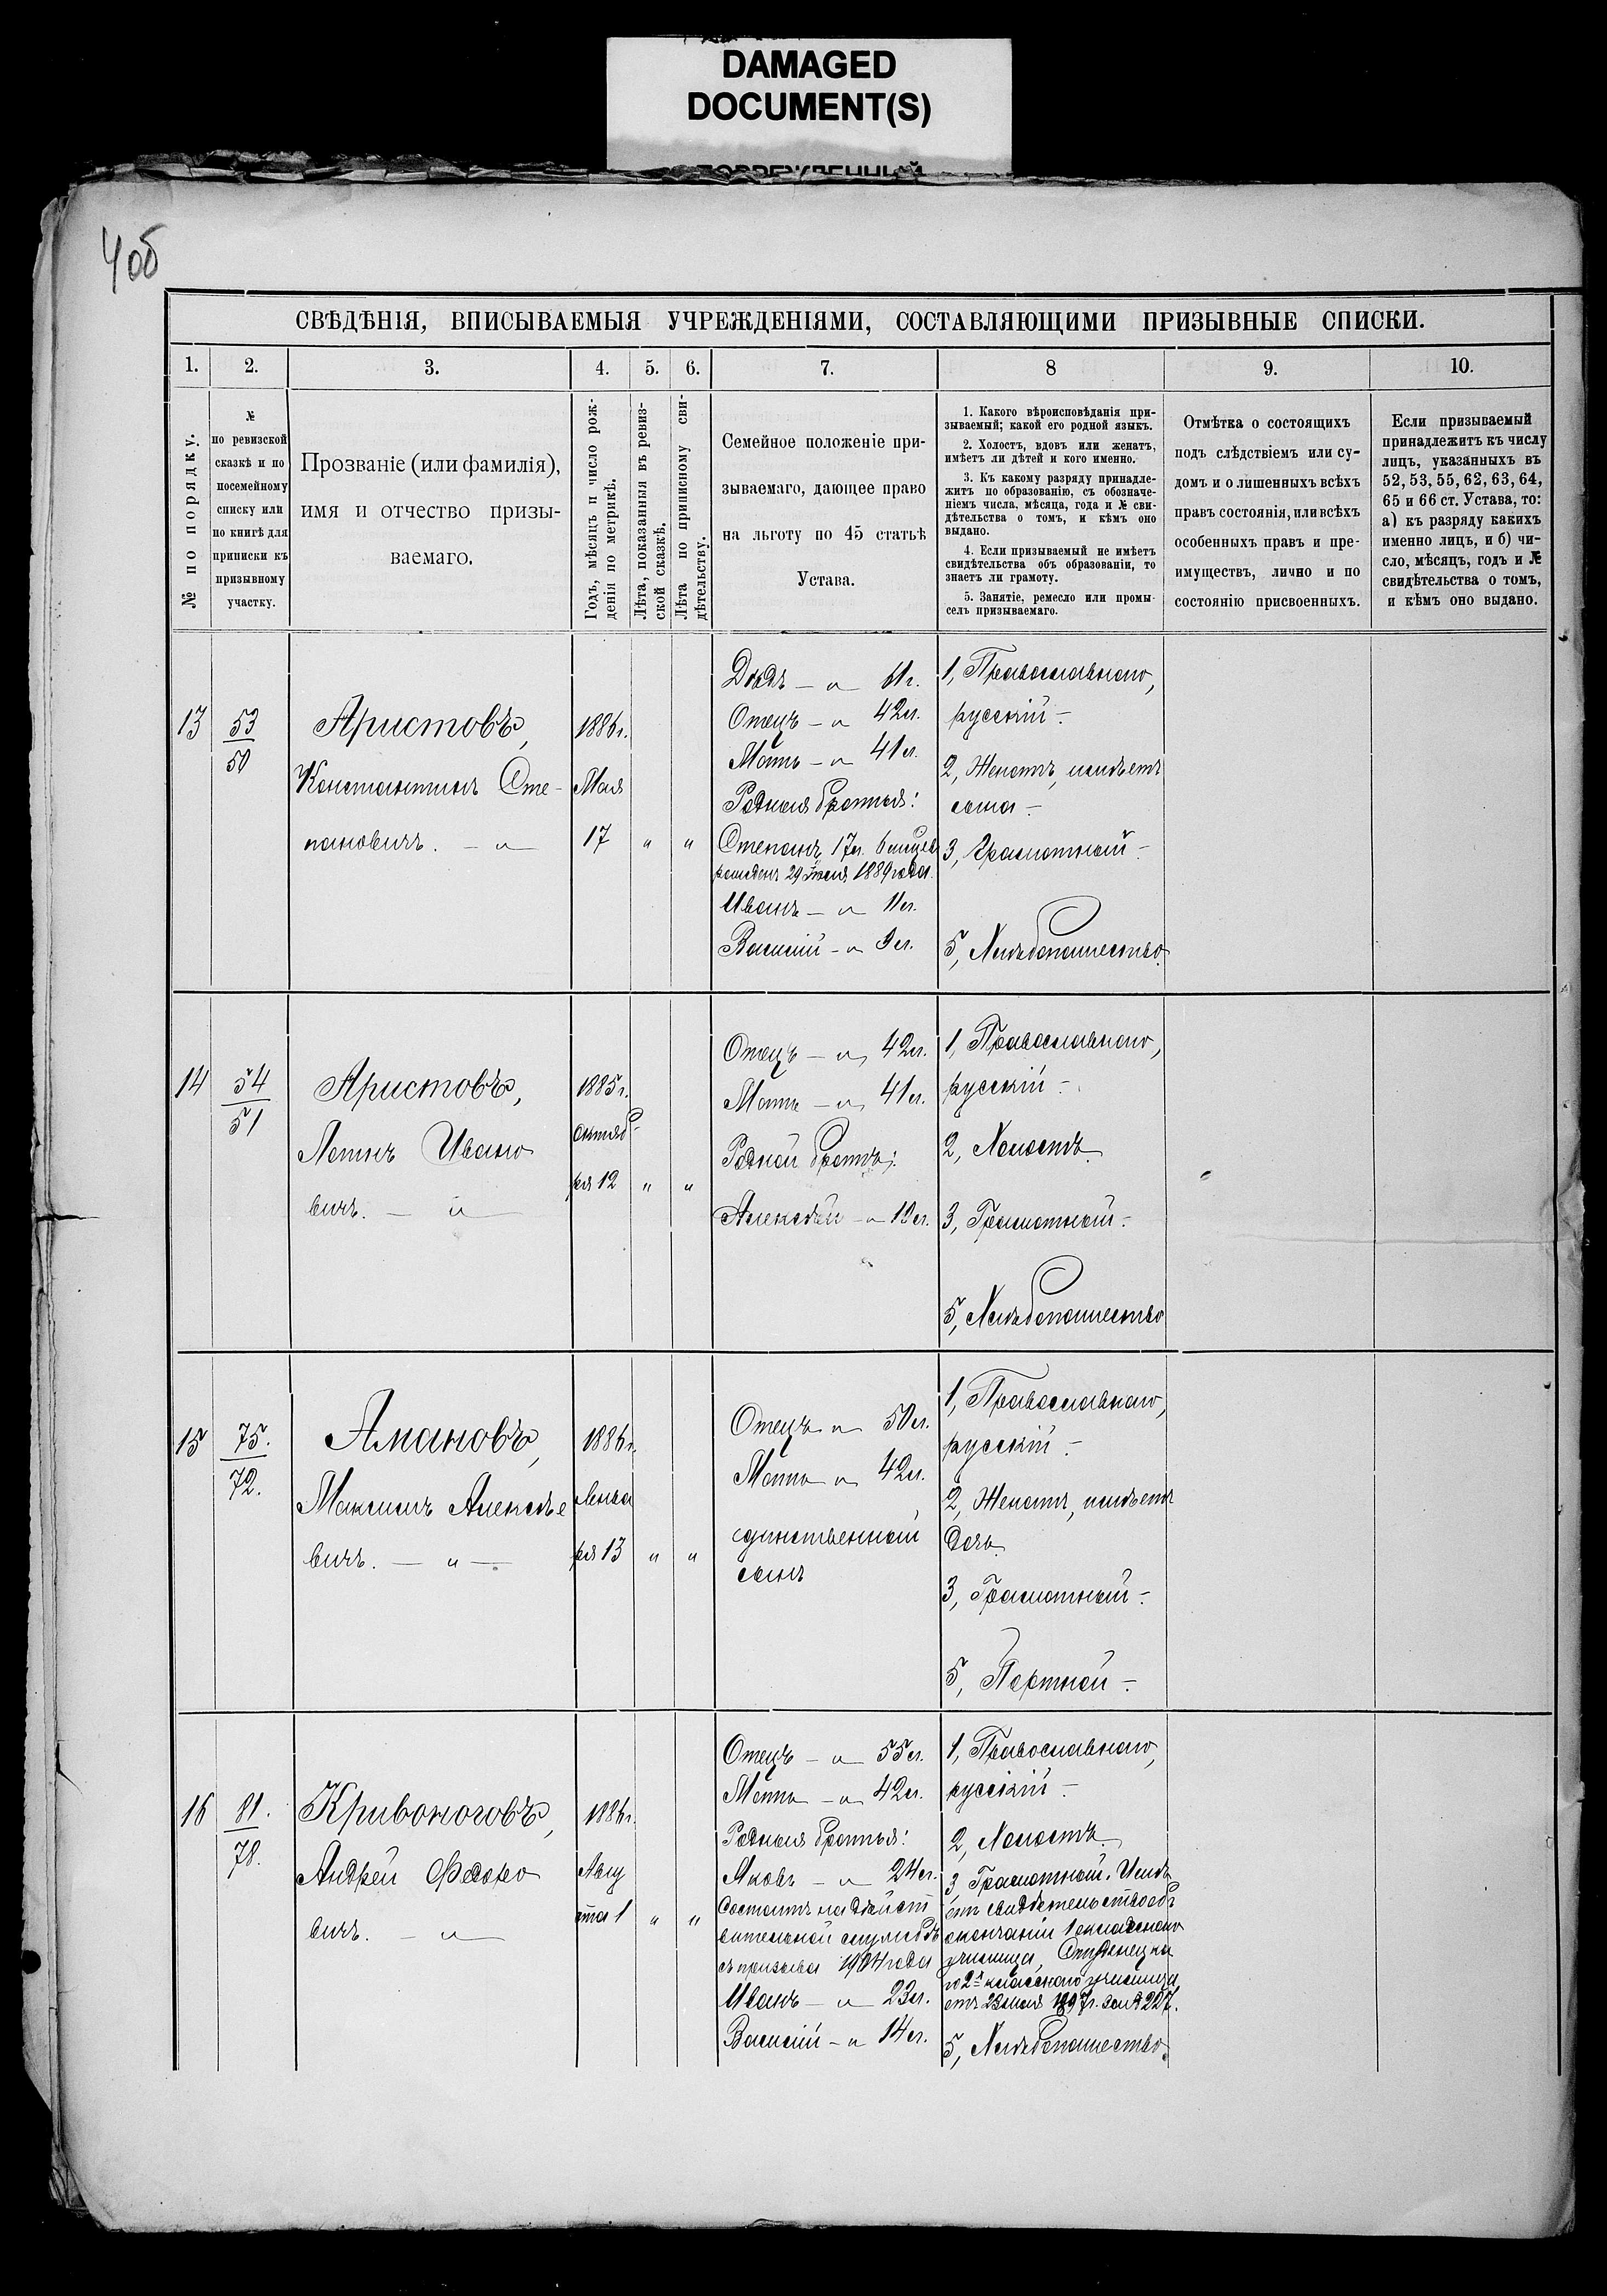 DAMAGED
DOCUMENT(S)
4об
СВѢДѢНІЯ, ВПИСЫВАЕМЫЯ УЧРЕЖДЕНІЯМИ, СОСТАВЛЯЮЩИМИ ПРИЗЫВНЫЕ СПИСКИ.
1. 2. 3. 4. 5. 6. 7. 8 9. 10.
№ по порядку.
№
по ревизской
сказкѣ и по
посемейному
списку или
по книгѣ для
приписки къ
призывному
участку.
Прозваніе (или фамилія),
имя и отчество призы-
ваемаго.
Годъ, мѣсяцъ и число рож-
денія по метрикѣ.
Лѣта, показанныя въ ревиз-
ской сказкѣ.
Лѣта по приписному сви-
дѣтельству.
Семейное положеніе при-
зываемаго, дающее право
на льготу по 45 статьѣ
Устава.
1. Какого вѣроисповѣданія при-
зываемый; какой его родной языкъ.
2. Холостъ, вдовъ или женатъ,
имѣетъ ли дѣтей и кого именно.
3. Къ какому разряду принадле-
житъ по образованію, съ обозначе-
ніемъ числа, мѣсяца, года и № сви-
дѣтельства о томъ, и кѣмъ оно
выдано.
4. Если призываемый не имѣетъ
свидѣтельства объ образованіи, то
знаетъ ли грамоту.
5. Занятіе, ремесло или промы-
селъ призываемаго.
Отмѣтка о состоящихъ
подъ слѣдствіемъ или су-
домъ и о лишенныхъ всѣхъ
правъ состоянія, или всѣхъ
особенныхъ правъ и пре-
имуществъ, лично и по
состоянію присвоенныхъ.
Если призываемый
принадлежитъ къ числу
лицъ, указанныхъ въ
52, 53, 55, 62, 63, 64,
65 и 66 ст. Устава, то:
а) къ разряду какихъ
именно лицъ, и б) чи-
сло, мѣсяцъ, годъ и №
свидѣтельства о томъ,
и кѣмъ оно выдано.
13
53
50
Аристовъ,
Константинъ Сте-
пановичъ. — " —
1886г.
Мая
17
"
"
Дѣдъ — " 61г.
Отецъ — " 42л.
Мать — " 41л.
Родныя братья:
Степанъ 17л. 6 мѣсяц.
рожденъ 29 1889 года.
Иванъ — " 11л.
Василій — " 9л.
1, Православнаго,
русскій —
2, Женатъ, имѣетъ
сына —
3, Грамотный —
5, Хлѣбопашество.
14
54
51
Аристовъ,
Ивано
вичъ. — " —
1885г.
октяб-
ря 12
"
"
Отецъ — " 42л.
Мать — " 41л.
Родной братъ:
Алексѣй — " 12л.
1, Православнаго,
русскій —
2, Холостъ.
3, Грамотный —
5, Хлѣбопашество
15
75.
72.
Амановъ,
Максимъ Алексѣе
вичъ. — " —
1886г.
Янва
ря 13
"
"
Отецъ " 50л.
Мать " 42л.
единственный
сынъ
1, Православнаго,
русскій —
2, Женатъ, имѣетъ
дочь.
3, Грамотный —
5, Портной —
16
81.
78.
Кривоноговъ,
Андрей Федоро
вичъ. — " —
1886г.
Авгу
ста 1
"
"
Отецъ — " 55л.
Мать — " 42л.
Родныя братья:
Яковъ — " 24л.
Состоитъ на дѣйст
вительной службѣ
съ призыва 1904 года
Иванъ — " 23л.
Василій — " 14л.
1, Православнаго,
русскій —
2, Холостъ.
3 Грамотный. Имѣ
етъ свидѣтельство объ
окончаніи 1 класснаго
училища,
го 2х класснаго училища
отъ 23 мая 1897г. за № 227.
5, Хлѣбопашество.